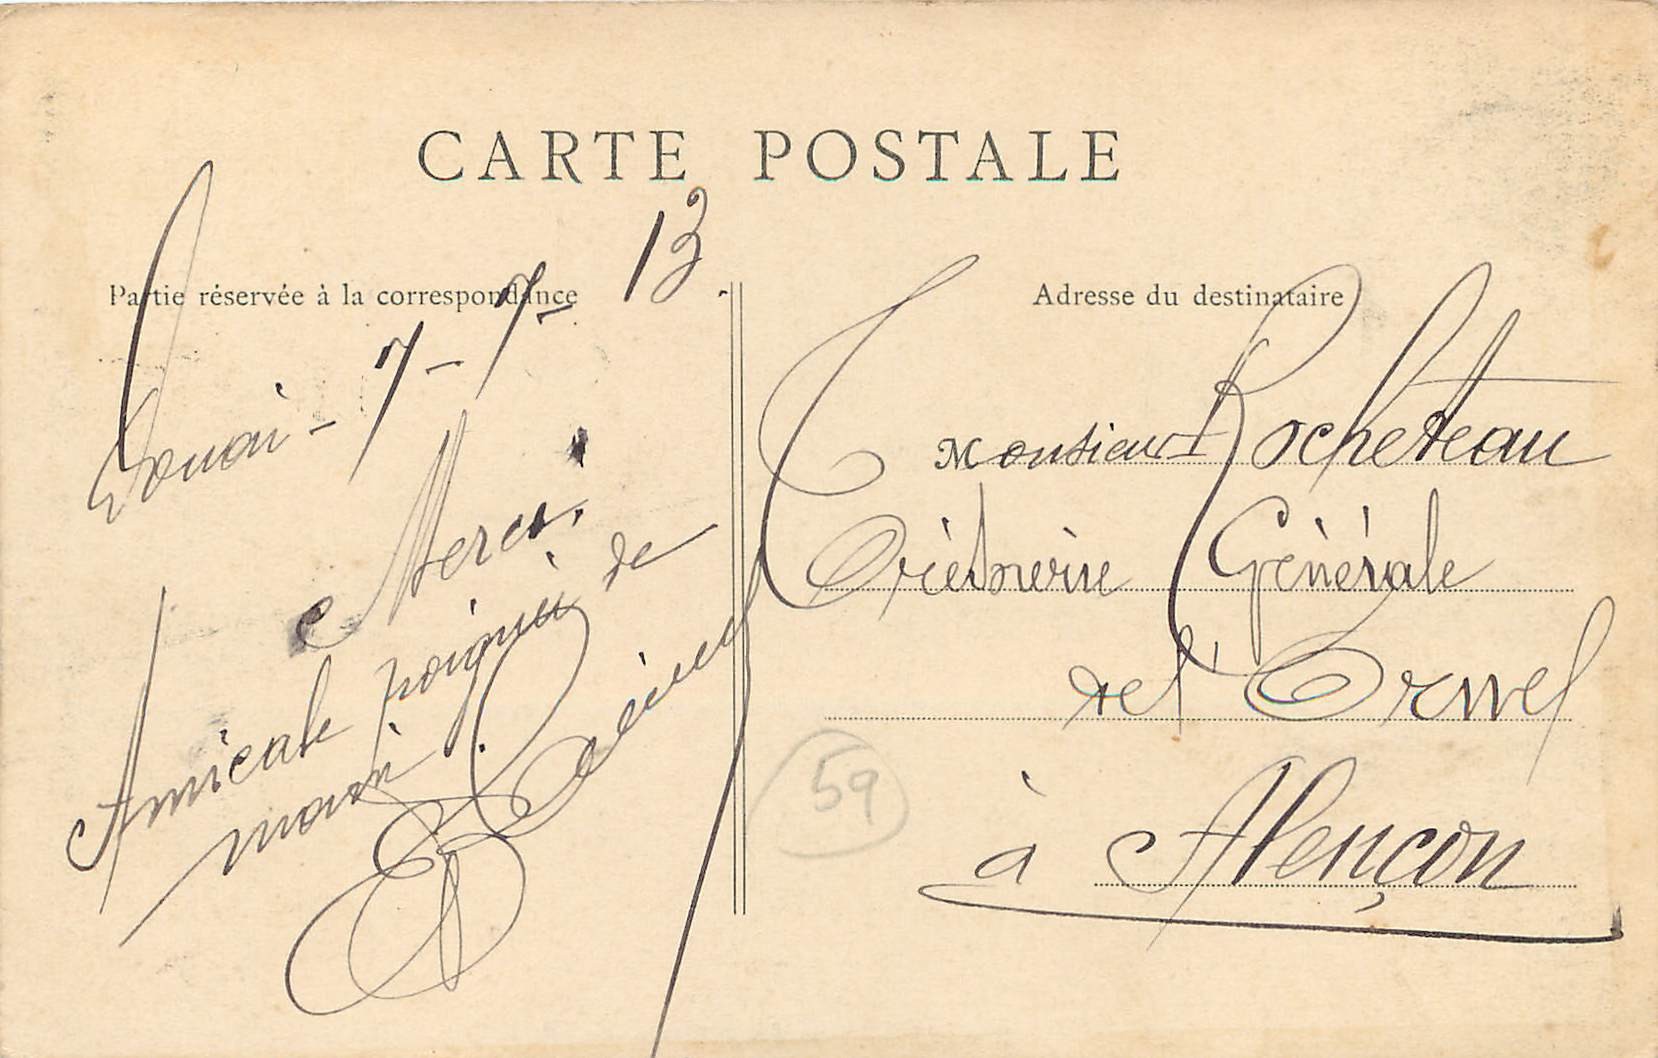 CARTE POSTALE
Partie réservée à la correspondance
Douai - 7 - 7 - 13.
Merci.
Amicale poignée de
main.
Adresse du destinataire
Monsieur Rocheteau
Trésorerie Générale
de l'Orne
à Alençon
59